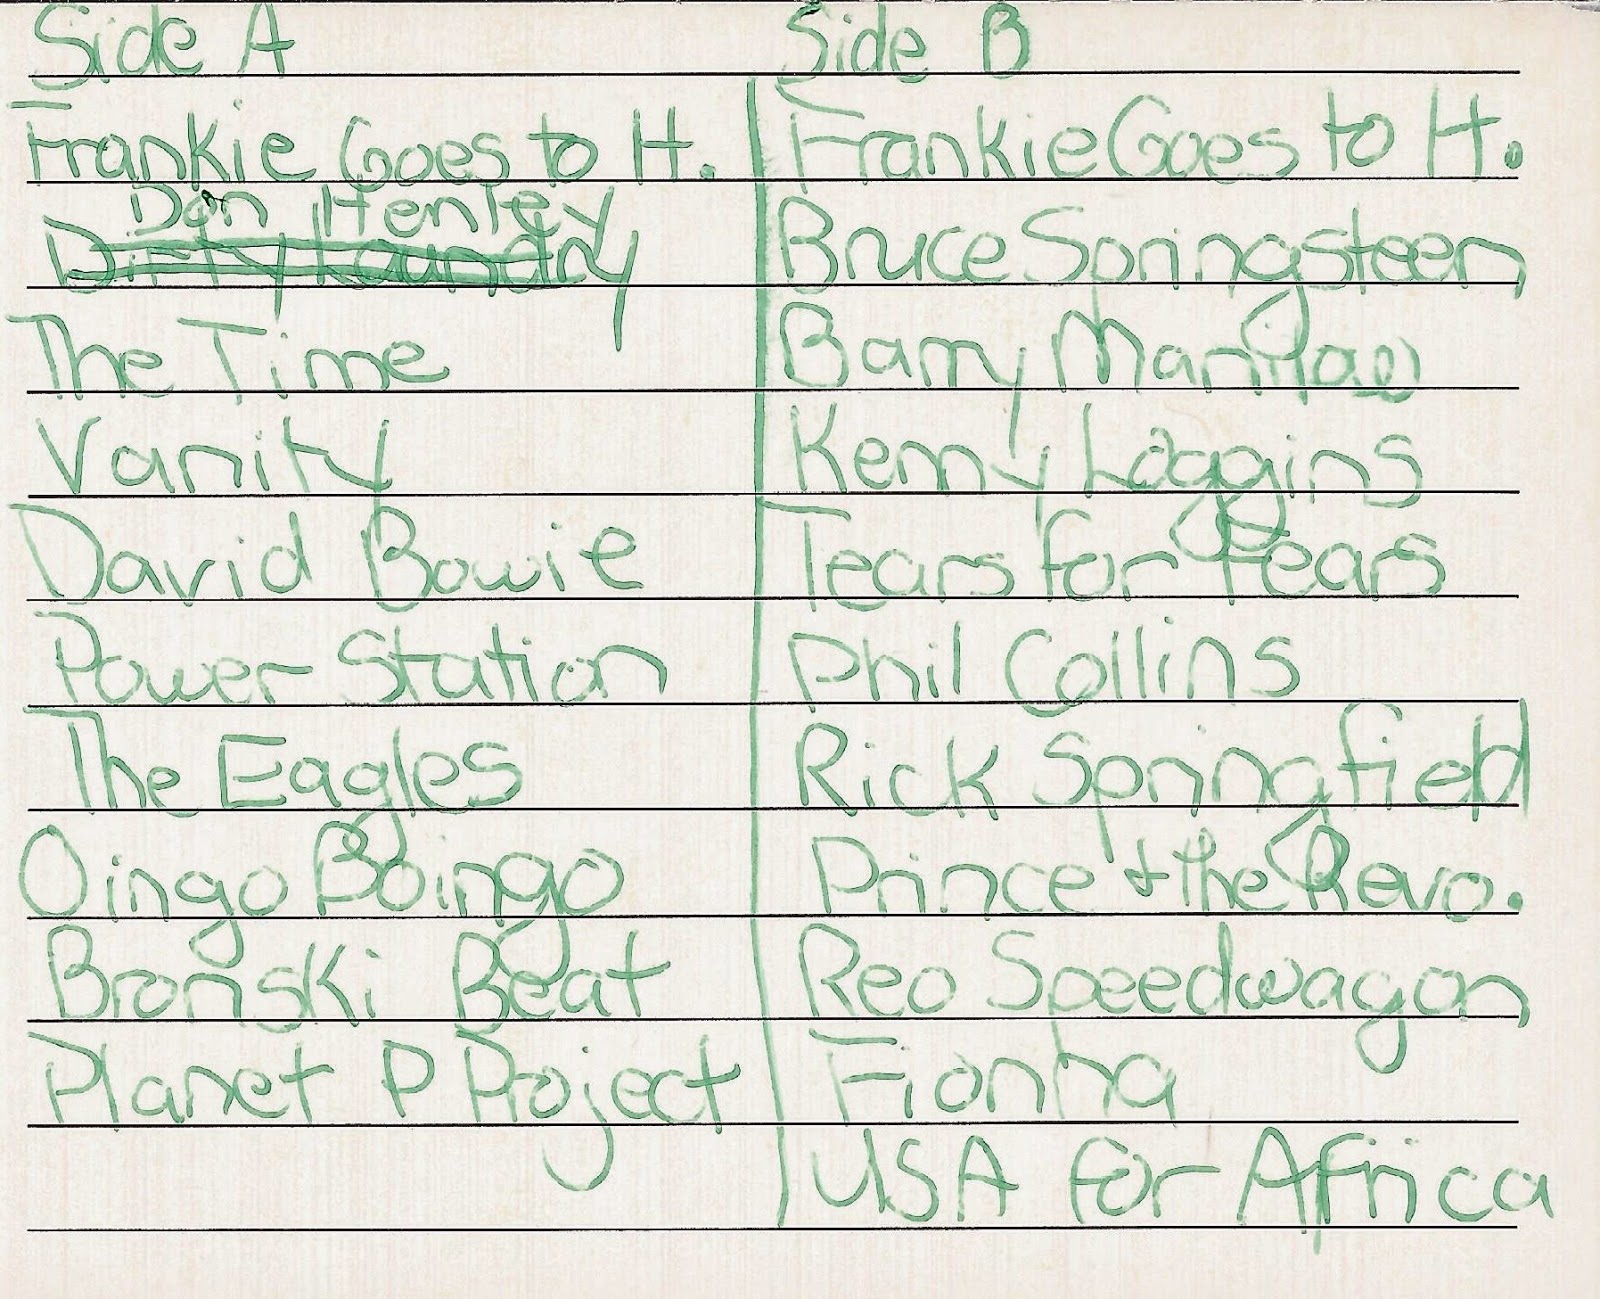 Side A
Frankie Goes to H.
Don Henley
Dirty Laundry
The Time
Vanity
David Bowie
Power Station
The Eagles
Oingo Boingo
Bronski Beat
Planet P Project
Side B
Frankie Goes to H.
Bruce Springsteen
Barry Manilow
Kenny Loggins
Tears for Fears
Phil Collins
Rick Springfield
Prince + the Revo.
Reo Speedwagon
Fionha
USA for Africa